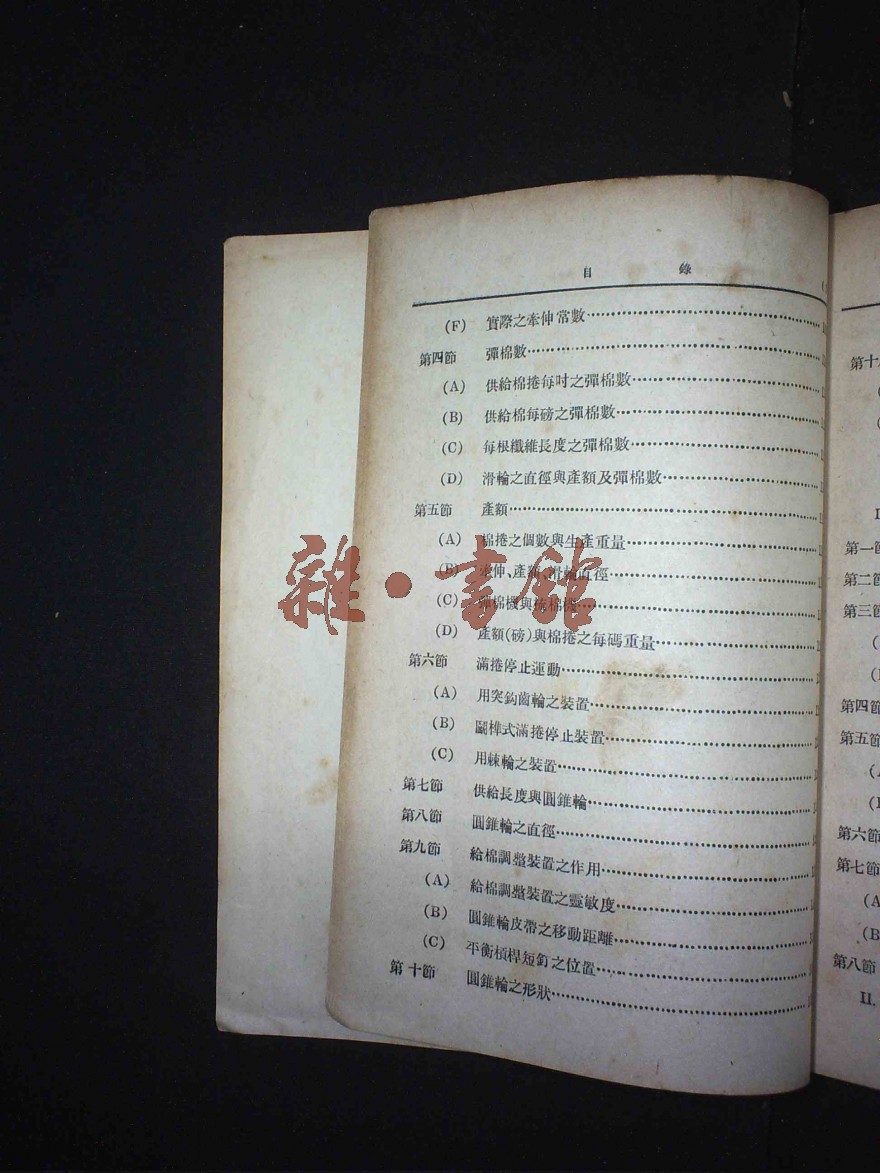 目錄
(F) 實際之牽伸常數
第四節 彈棉數
(A) 供給棉捲每吋之彈棉數
(B) 供給棉每磅之彈棉數
(C) 每根纖維長度之彈棉數
(D) 滑輪之直徑與產額及彈棉數
第五節 產額
(A) 棉捲之個數與生產重量
(B) 牽伸、產額、滑輪直徑
(C) 彈棉機與梳棉機
(D) 產額(磅)與棉捲之每碼重量
第六節 滿捲停止運動
(A) 用突鈎齒輪之裝置
(B) 鬭榫式滿捲停止裝置
(C) 用棘輪之裝置
第七節 供給長度與圓錐輪
第八節 圓錐輪之直徑
第九節 給棉調整裝置之作用
(A) 給棉調整裝置之靈敏度
(B) 圓錐輪皮帶之移動距離
(C) 平衡槓桿短釘之位置
第十節 圓錐輪之形狀
雜·書館
第十
第一節
第二節
第三節
第四節
第五節
(A
第六節
第七節
(A
(B
第八節
II.